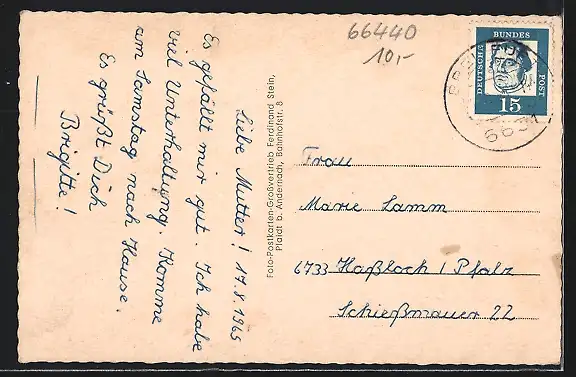 66440
10,-
DEUTSCHE
BUNDES
POST
15
6631
Liebe Mutter! 17.8.1965
Es gefällt mir gut. Ich habe
viel Unterhaltung. Komme
am Samstag nach Hause.
Es grüßt Dich
Brigitte!
Foto-Postkarten-Großvertrieb Ferdinand Stein,
Plaidt b. Andernach, Bahnhofstr. 8
Frau
Marie Lamm
6733 Haßloch / Pfalz
Schießmauer 22